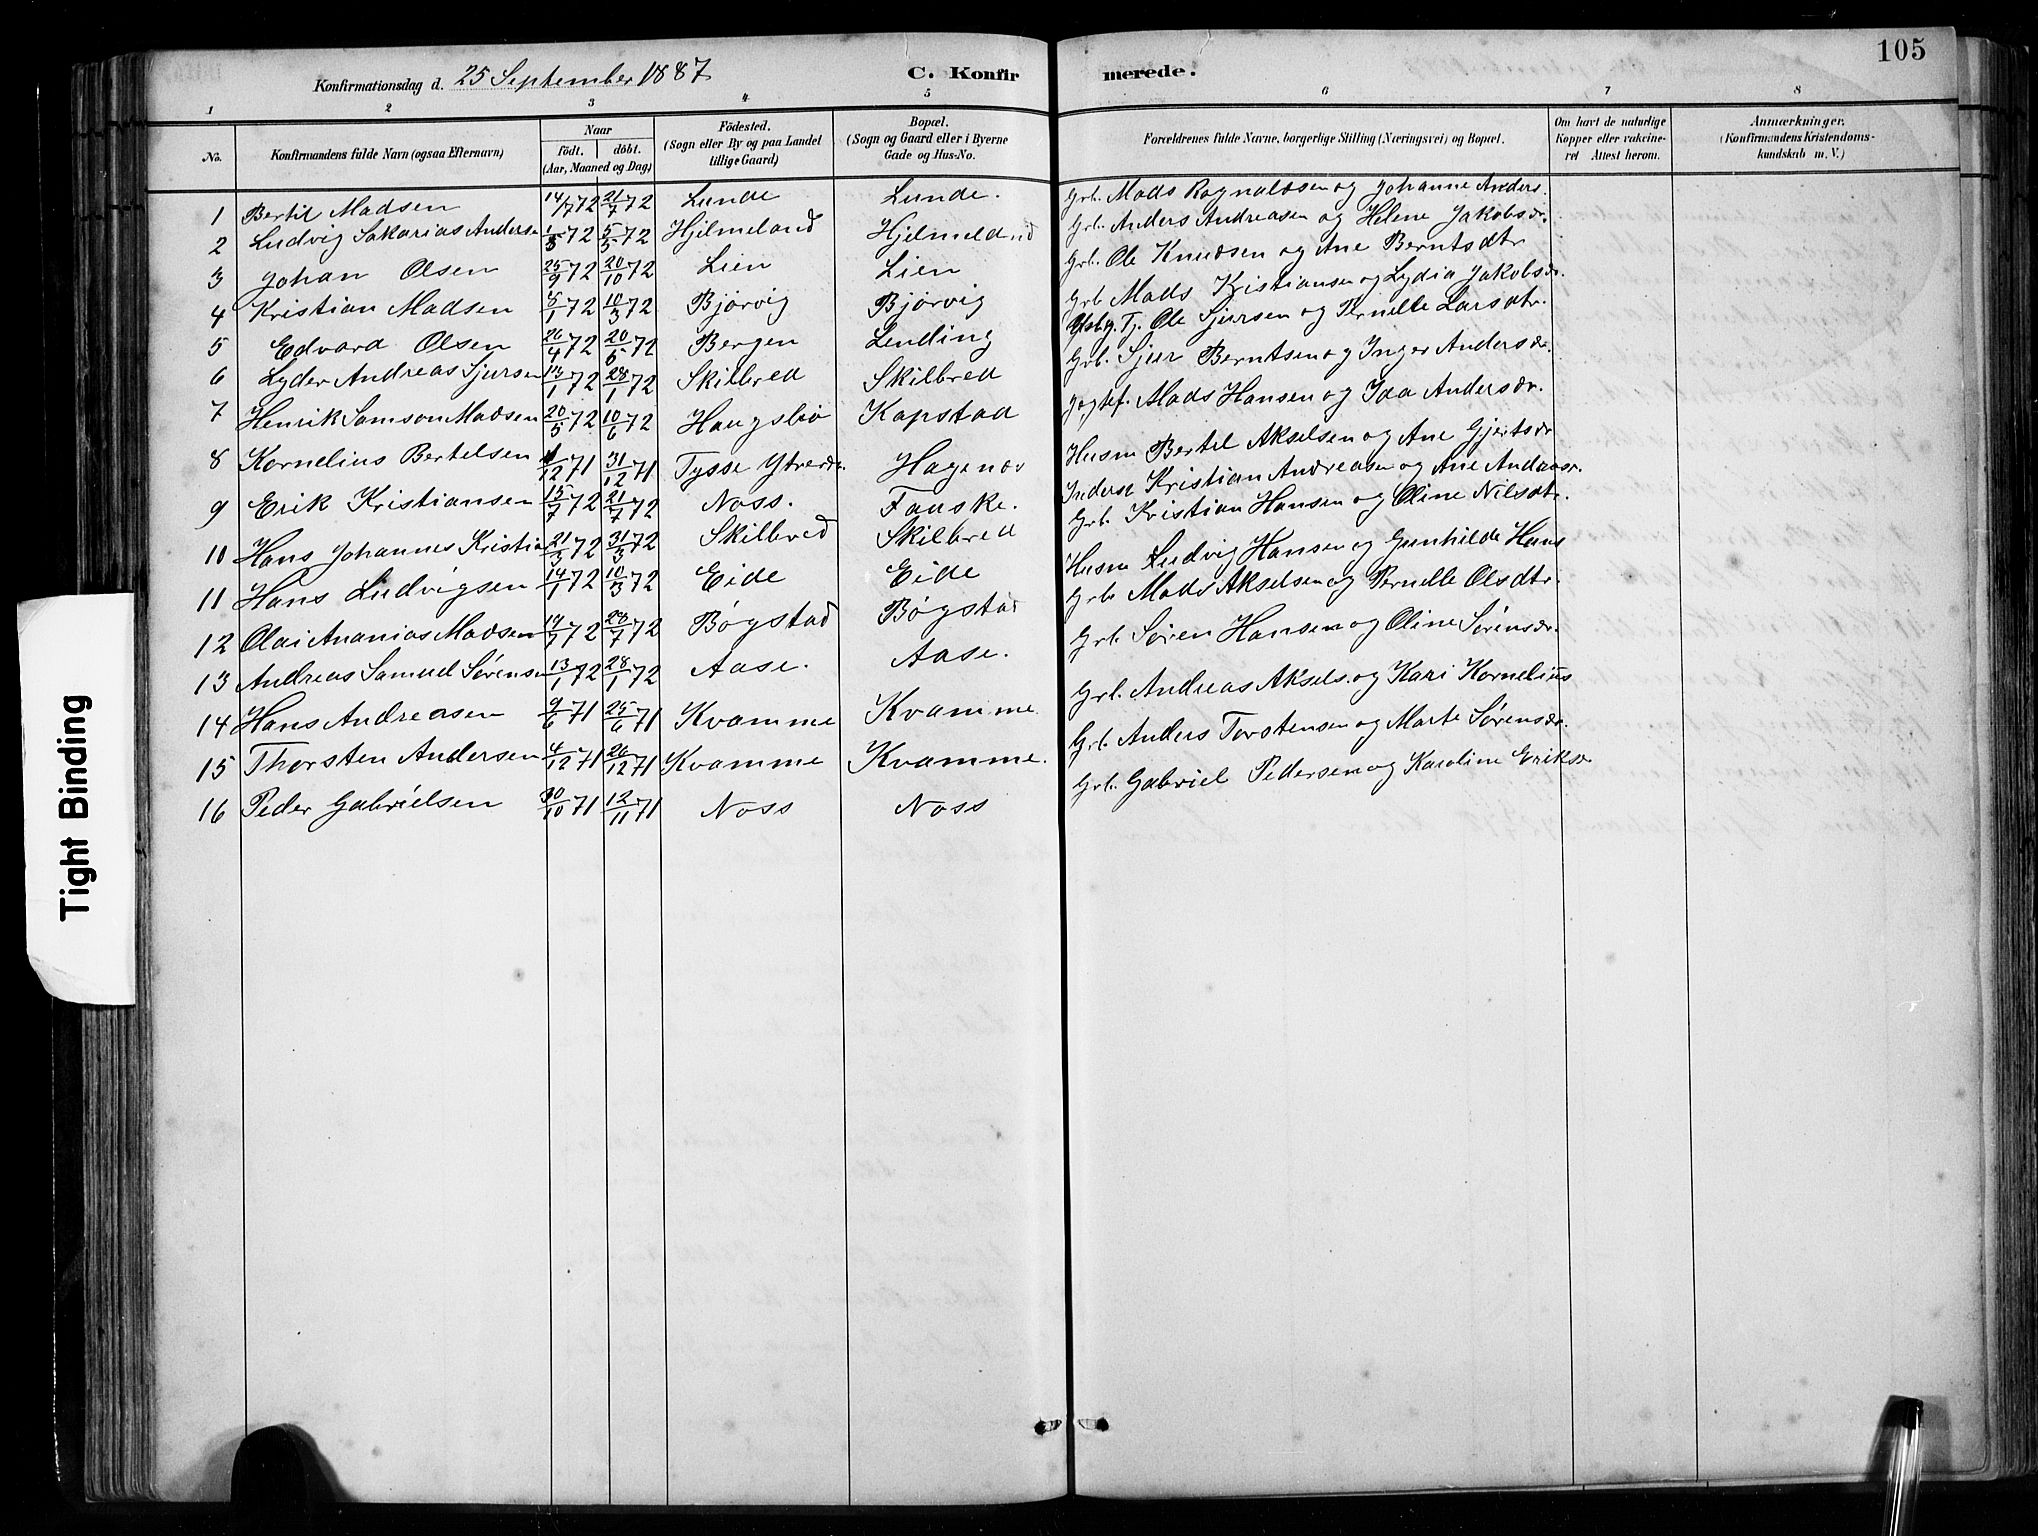 105
Konfirmationsdag d. 25 September 1887
C. Konfir merede.
1 2 3 4 5 6 7 8
No. Konfirmandens fulde Navn (ogsaa Efternavn) Naar födt. döbt. (Aar, Maaned og Dag) Födested. (Sogn eller By og paa Landet tillige Gaard) Bopæl. (Sogn og Gaard eller i Byerne Gade og Hus-No. Forældrenes fulde Navne, borgerlige Stilling (Næringsvei) og Bopæl. Om havt de naturlige Kopper eller vakcineret Attest herom. Anmærkninger. (Konfirmandens Kristendomskundskab m. V.)
1 Bertil Madsen 14/7 72 21/7 72 Lunde Lunde. Grb. Mads Ragnaldsen og Johanne Anders.
2 Ludvig Sakarias Anderse 1/3 72 5/5 72 Hjelmeland Hjelmeland Grb. Anders Andreasen og Helene Jakobsdr.
3 Johan Olsen 25/9 72 20/10 72 Lien Lien Grb. Ole Knudsen og Ane Berntsdtr
4 Kristian Madsen 5/1 72 10/3 72 Bjørvig Bjørvig Grb Mads Kristiansen og Lydia Jakobsdr.
5 Edvard Olsen 26/4 72 20/5 72 Bergen Lending Tj. Ole Sjursen og Pernelle Larsdtr.
6 Lyder Andreas Sjursen 13/1 72 28/1 72 Skilbred Skilbred Grb. Sjur Berntsen og Inger Andersdr.
7 Henrik Samson Madsen 20/5 72 10/6 72 Haugsbø Kapstad Mads Hansen og Ida Andersdr.
8 Kornelius Bertelsen /12 71 31/12 71 Tysse Hagenæs Husm Bertel Akselsen og Ane Gjertsdr
9 Erik Kristiansen 15/7 72 21/7 72 Noss. Fauske. Inderst Kristian Andreasen og Ane Andreasr.
10 Hans Johannes Kristia 21/3 72 31/3 72 Skilbred Skilbred Grb. Kristian Hansen og Oline Nilsdtr.
11 Hans Ludvigsen 14/1 72 10/3 72 Eide Eide Husm Ludvig Hansen og Gunhilde Hans
12 Olai Ananias Madsen 14/7 72 28/7 72 Bøgstad Bøgstad Grb Mads Akselsen og Pernelle Olsdtr.
13 Andreas Samuel Sørensen 13/1 72 28/1 72 Aase. Aase. Grb. Søren Hansen og Oline Sørensdr.
14 Hans Andreasen 9/6 71 25/6 71 Kvamme Kvamme. Grb. Andreas Aksels. og Kari Kornelius
15 Thorsten Andersen 4/12 71 26/12 71 Kvamme Kvamme. Grb. Anders Torstensen og Marte Sørensdr.
16 Peder Gabrielsen 30/10 71 12/11 71 Noss Noss Grb. Gabriel Pedersen og Karoline Eriksdr
Tight Binding